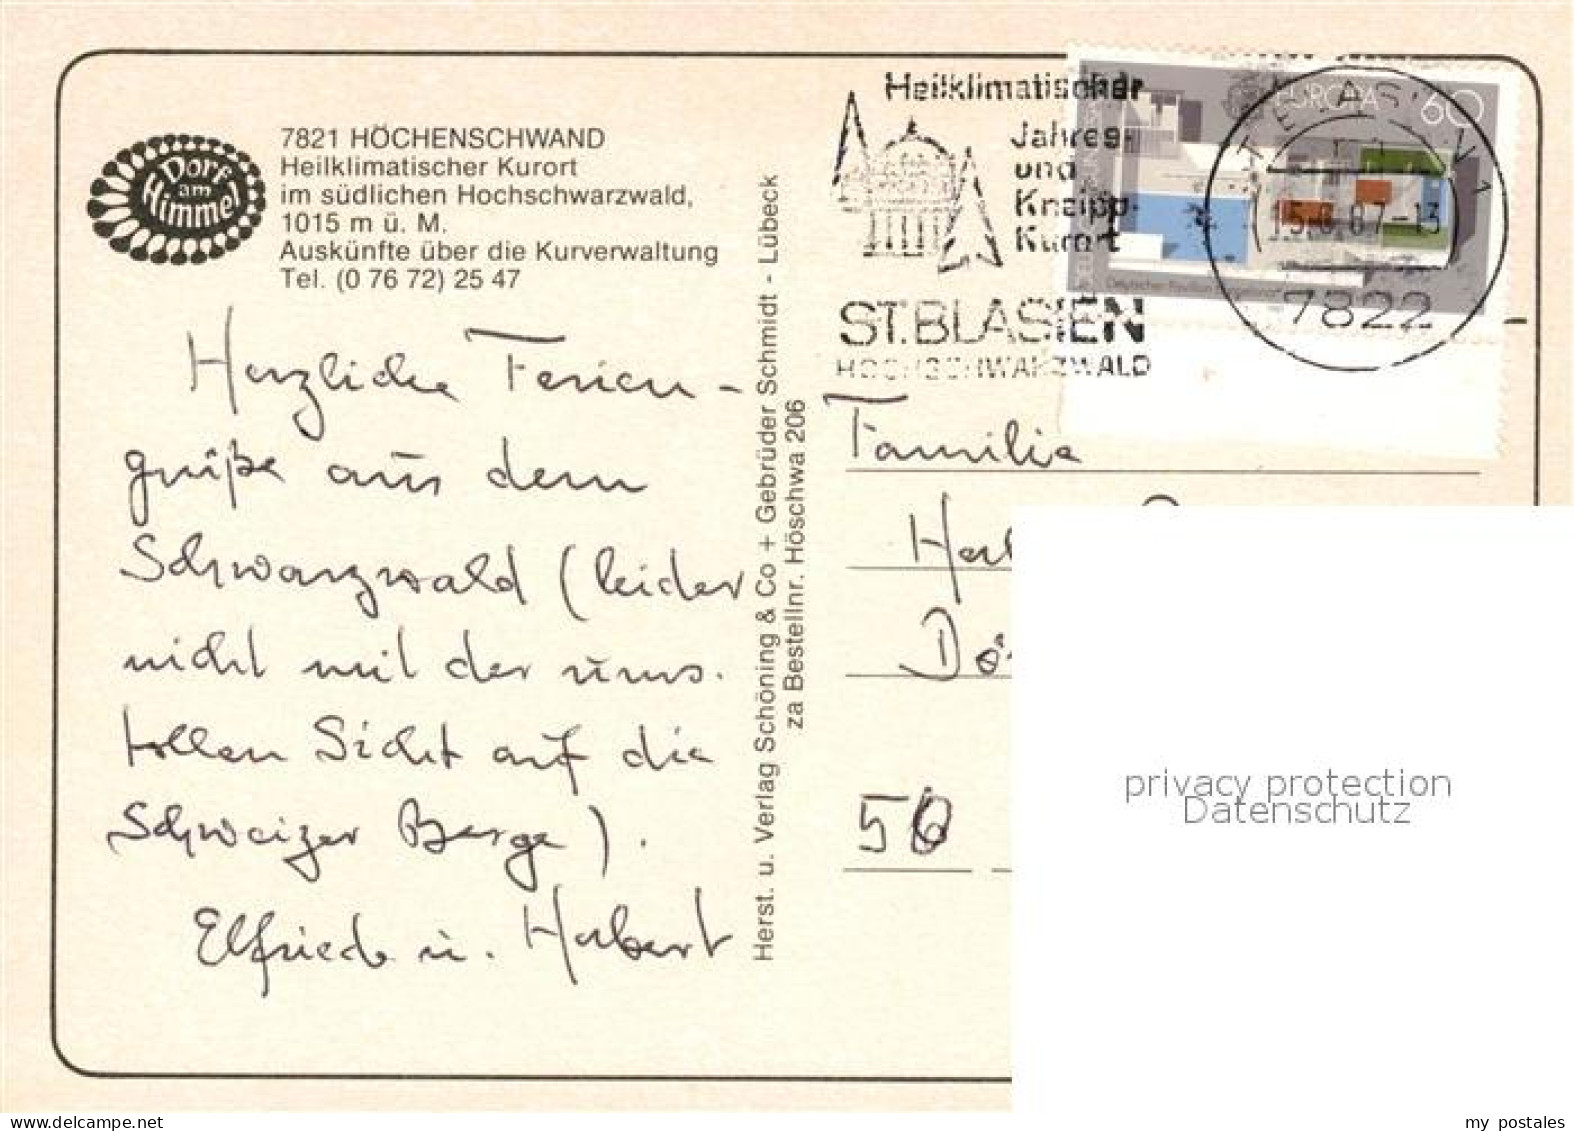 Dorf
am
Himmel
7821 HÖCHENSCHWAND
Heilklimatischer Kurort
im südlichen Hochschwarzwald,
1015 m ü. M.
Auskünfte über die Kurverwaltung
Tel. (0 76 72) 25 47
Herzliche Ferien-
grüße aus dem
Schwarzwald (leider
nicht mit der ums.
tollen Sicht auf die
Schweizer Berge).
Elfriede u. Herbert
Herst. u. Verlag Schöning & Co + Gebrüder Schmidt - Lübeck
za Bestellnr. Höschwa 206
Heilklimatischer
Jahres-
und
Kneipp-
Kurort
ST. BLASIEN
HOCHSCHWARZWALD
EUROPA 60
Deutscher Pavillon
ST. BLASIEN 1
15.6.87-13
7822
Familie
56
privacy protection
Datenschutz
my postales